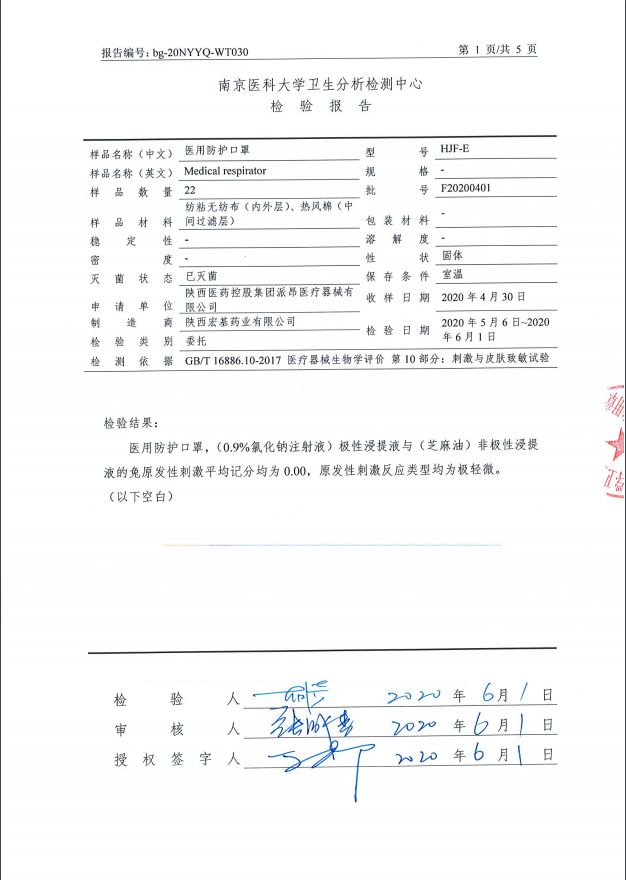 报告编号: bg-20NYYQ-WT030 第 1 页/共 5 页
南京医科大学卫生分析检测中心
检 验 报 告
样品名称（中文） 医用防护口罩 型 号 HJF-E
样品名称（英文） Medical respirator 规 格 -
样 品 数 量 22 批 号 F20200401
样 品 材 料 纺粘无纺布（内外层）、热风棉（中
间过滤层） 包 装 材 料 -
稳 定 性 - 溶 解 度 -
密 度 - 性 状 固体
灭 菌 状 态 已灭菌 保 存 条 件 室温
申 请 单 位 陕西医药控股集团派昂医疗器械有
限公司 收 样 日 期 2020 年 4 月 30 日
制 造 商 陕西宏基药业有限公司
检 验 类 别 委托 检 验 日 期 2020 年 5 月 6 日~2020
年 6 月 1 日
检 测 依 据 GB/T 16886.10-2017 医疗器械生物学评价 第 10 部分：刺激与皮肤致敏试验
检验结果：
医用防护口罩，（0.9%氯化钠注射液）极性浸提液与（芝麻油）非极性浸提
液的兔原发性刺激平均记分均为 0.00，原发性刺激反应类型均为极轻微。
（以下空白）
检 验 人 2020 年 6 月 1 日
审 核 人 2020 年 6 月 1 日
授 权 签 字 人 2020 年 6 月 1 日